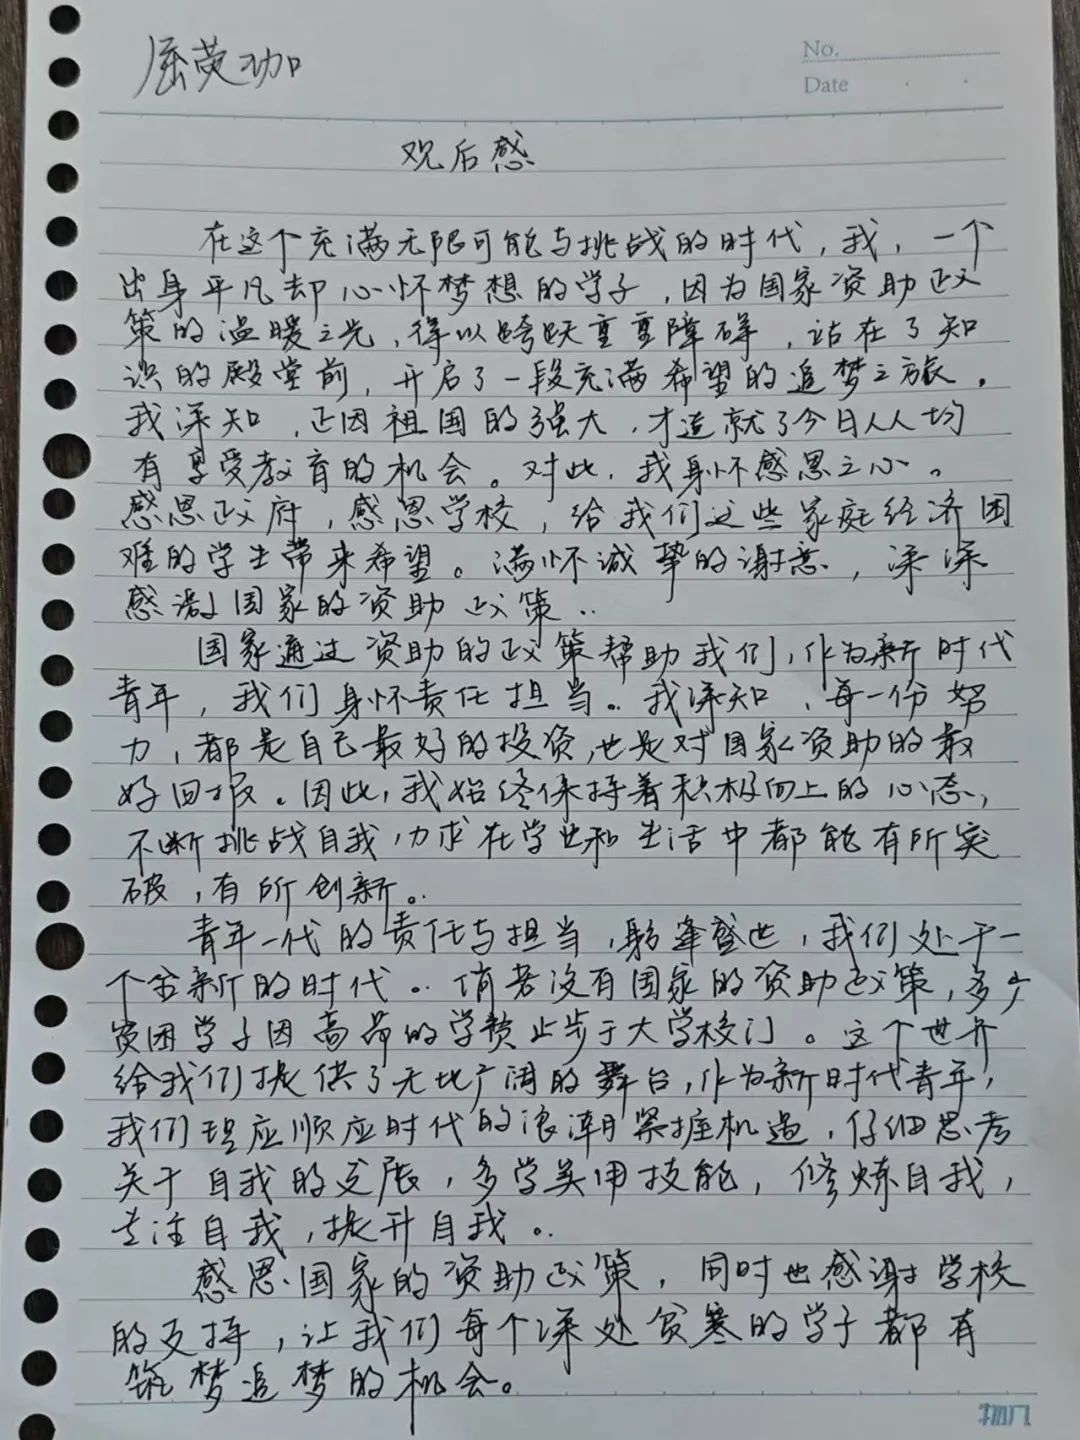 屈荧珈
No.
Date
观后感
在这个充满无限可能与挑战的时代，我，一个
出身平凡却心怀梦想的学子，因为国家资助政
策的温暖之光，得以跨跃重重障碍，站在了知
识的殿堂前，开启了一段充满希望的追梦之旅。
我深知，正因祖国的强大，才造就了今日人人均
有享受教育的机会。对此，我身怀感恩之心。
感恩政府，感恩学校，给我们这些家庭经济困
难的学生带来希望。满怀诚挚的谢意，深深
感激国家的资助政策..
国家通过资助的政策帮助我们，作为新时代
青年，我们身怀责任担当。我深知，每一份努
力，都是自己最好的投资，也是对国家资助的最
好回报。因此，我始终保持着积极向上的心态，
不断挑战自我，力求在学业和生活中都能有所突
破，有所创新。
青年一代的责任与担当，躬逢盛世，我们处于一
个全新的时代。倘若没有国家的资助政策，多少
贫困学子因高昂的学费止步于大学校门。这个世界
给我们提供了无比广阔的舞台，作为新时代青年，
我们理应顺应时代的浪潮紧握机遇，仔细思考
关于自我的发展，多学实用技能，修炼自我，
专注自我，提升自我。
感恩国家的资助政策，同时也感谢学校
的支持，让我们每个深处贫寒的学子都有
筑梦追梦的机会。